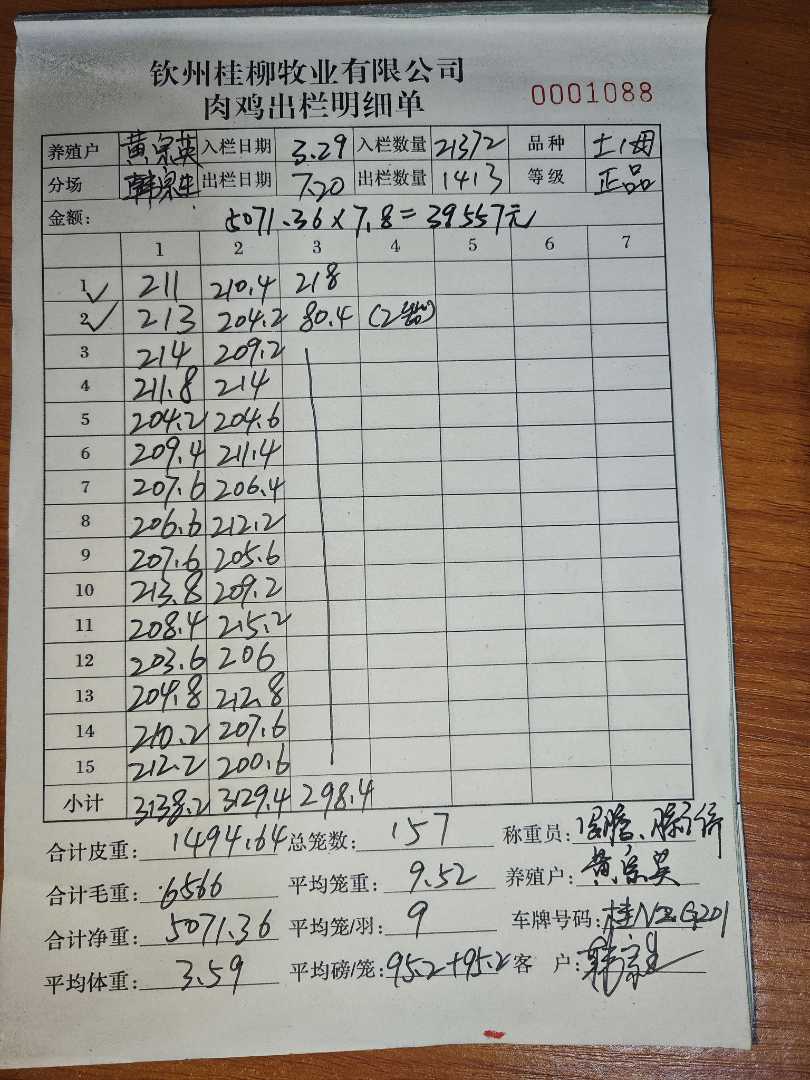 钦州桂柳牧业有限公司
肉鸡出栏明细单 0001088
养殖户 黄宗英 入栏日期 3.29 入栏数量 21372 品种 土2母
分场 出栏日期 7.20 出栏数量 1413 等级 正品
金额: 5071.36×7.8=39557元
1 2 3 4 5 6 7
1 211 210.4 218
2 213 204.2 80.4 (2笼)
3 214 209.2
4 211.8 214
5 204.2 204.6
6 209.4 211.4
7 207.6 206.4
8 206.6 212.2
9 207.6 205.6
10 213.8 209.2
11 208.4 215.2
12 203.6 206
13 204.8 212.8
14 210.2 207.6
15 212.2 200.6
小计 3138.2 3129.4 298.4
合计皮重: 1494.64 总笼数: 157 称重员:
合计毛重: 6566 平均笼重: 9.52 养殖户: 黄宗英
合计净重: 5071.36 平均笼/羽: 9 车牌号码: 桂N
平均体重: 3.59 平均磅/笼: 95.2+95.2 客 户: